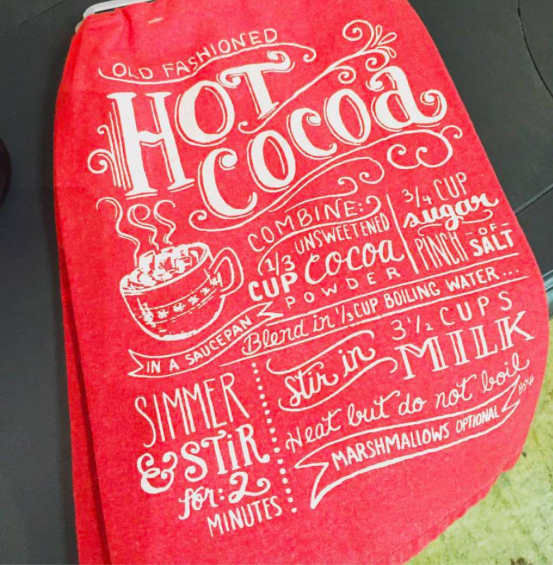 OLD FASHIONED
HOT
COCOA
COMBINE:
1/3 UNSWEETENED
CUP Cocoa
POWDER
3/4 CUP
sugar
PINCH -OF- SALT
IN A SAUCEPAN
Blend in 1/3 CUP BOILING WATER...
SIMMER
& STIR
for: 2
MINUTES
Stir in
3 1/2 CUPS
MILK
Heat but do not boil
MARSHMALLOWS OPTIONAL